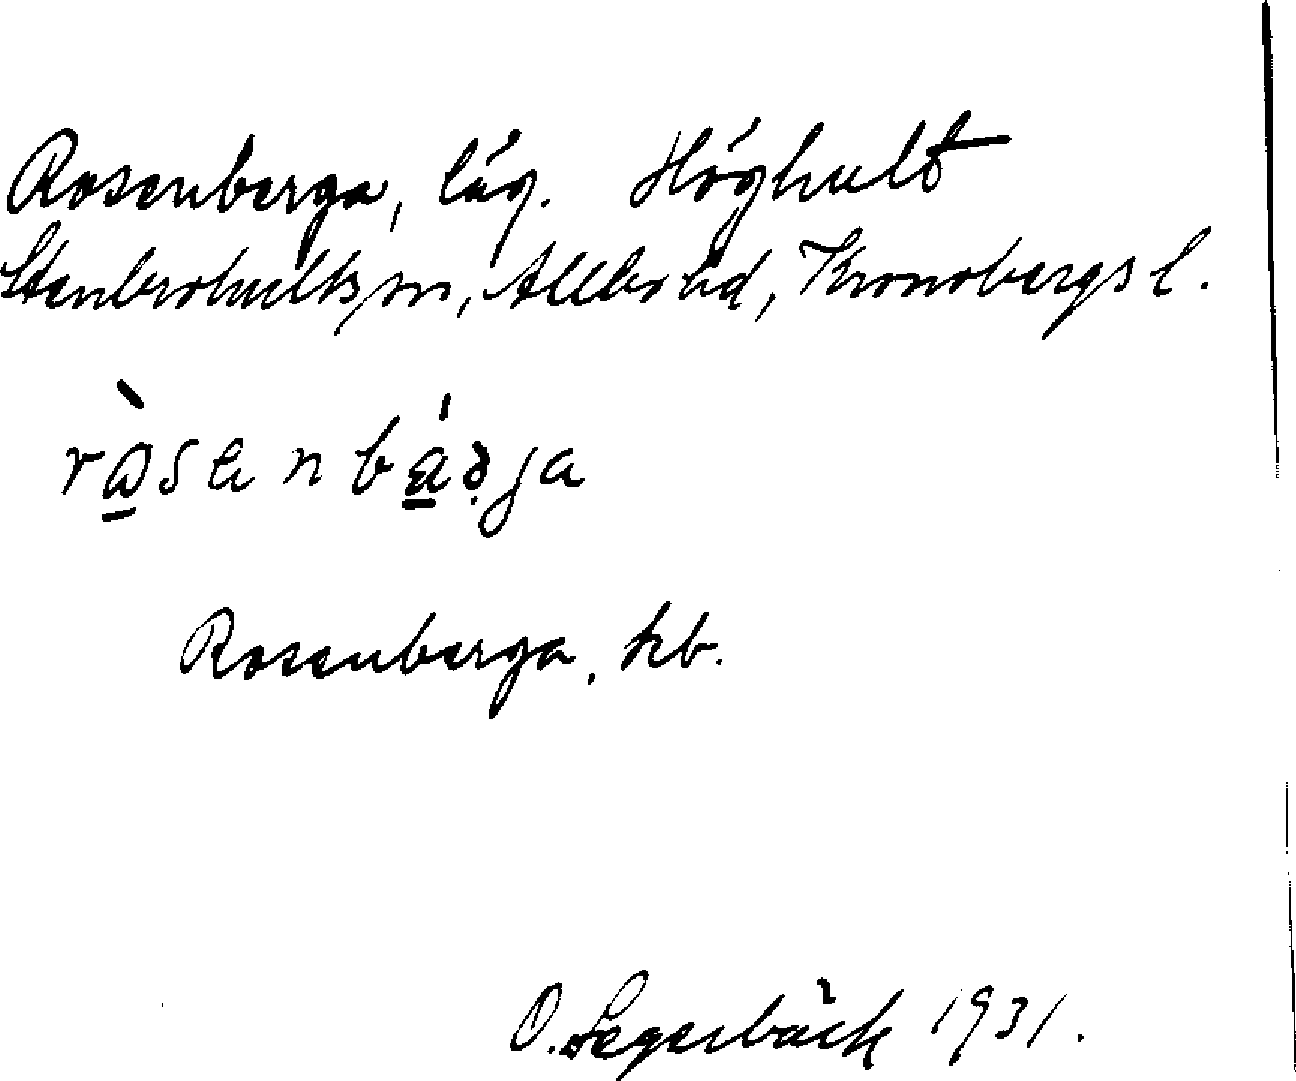 Rosenberga, läg. Höghult
Stenbrohults sn, Allbo hd, Kronobergs l.
Rosenberga, kb.
O. Lagerbäck 1931.